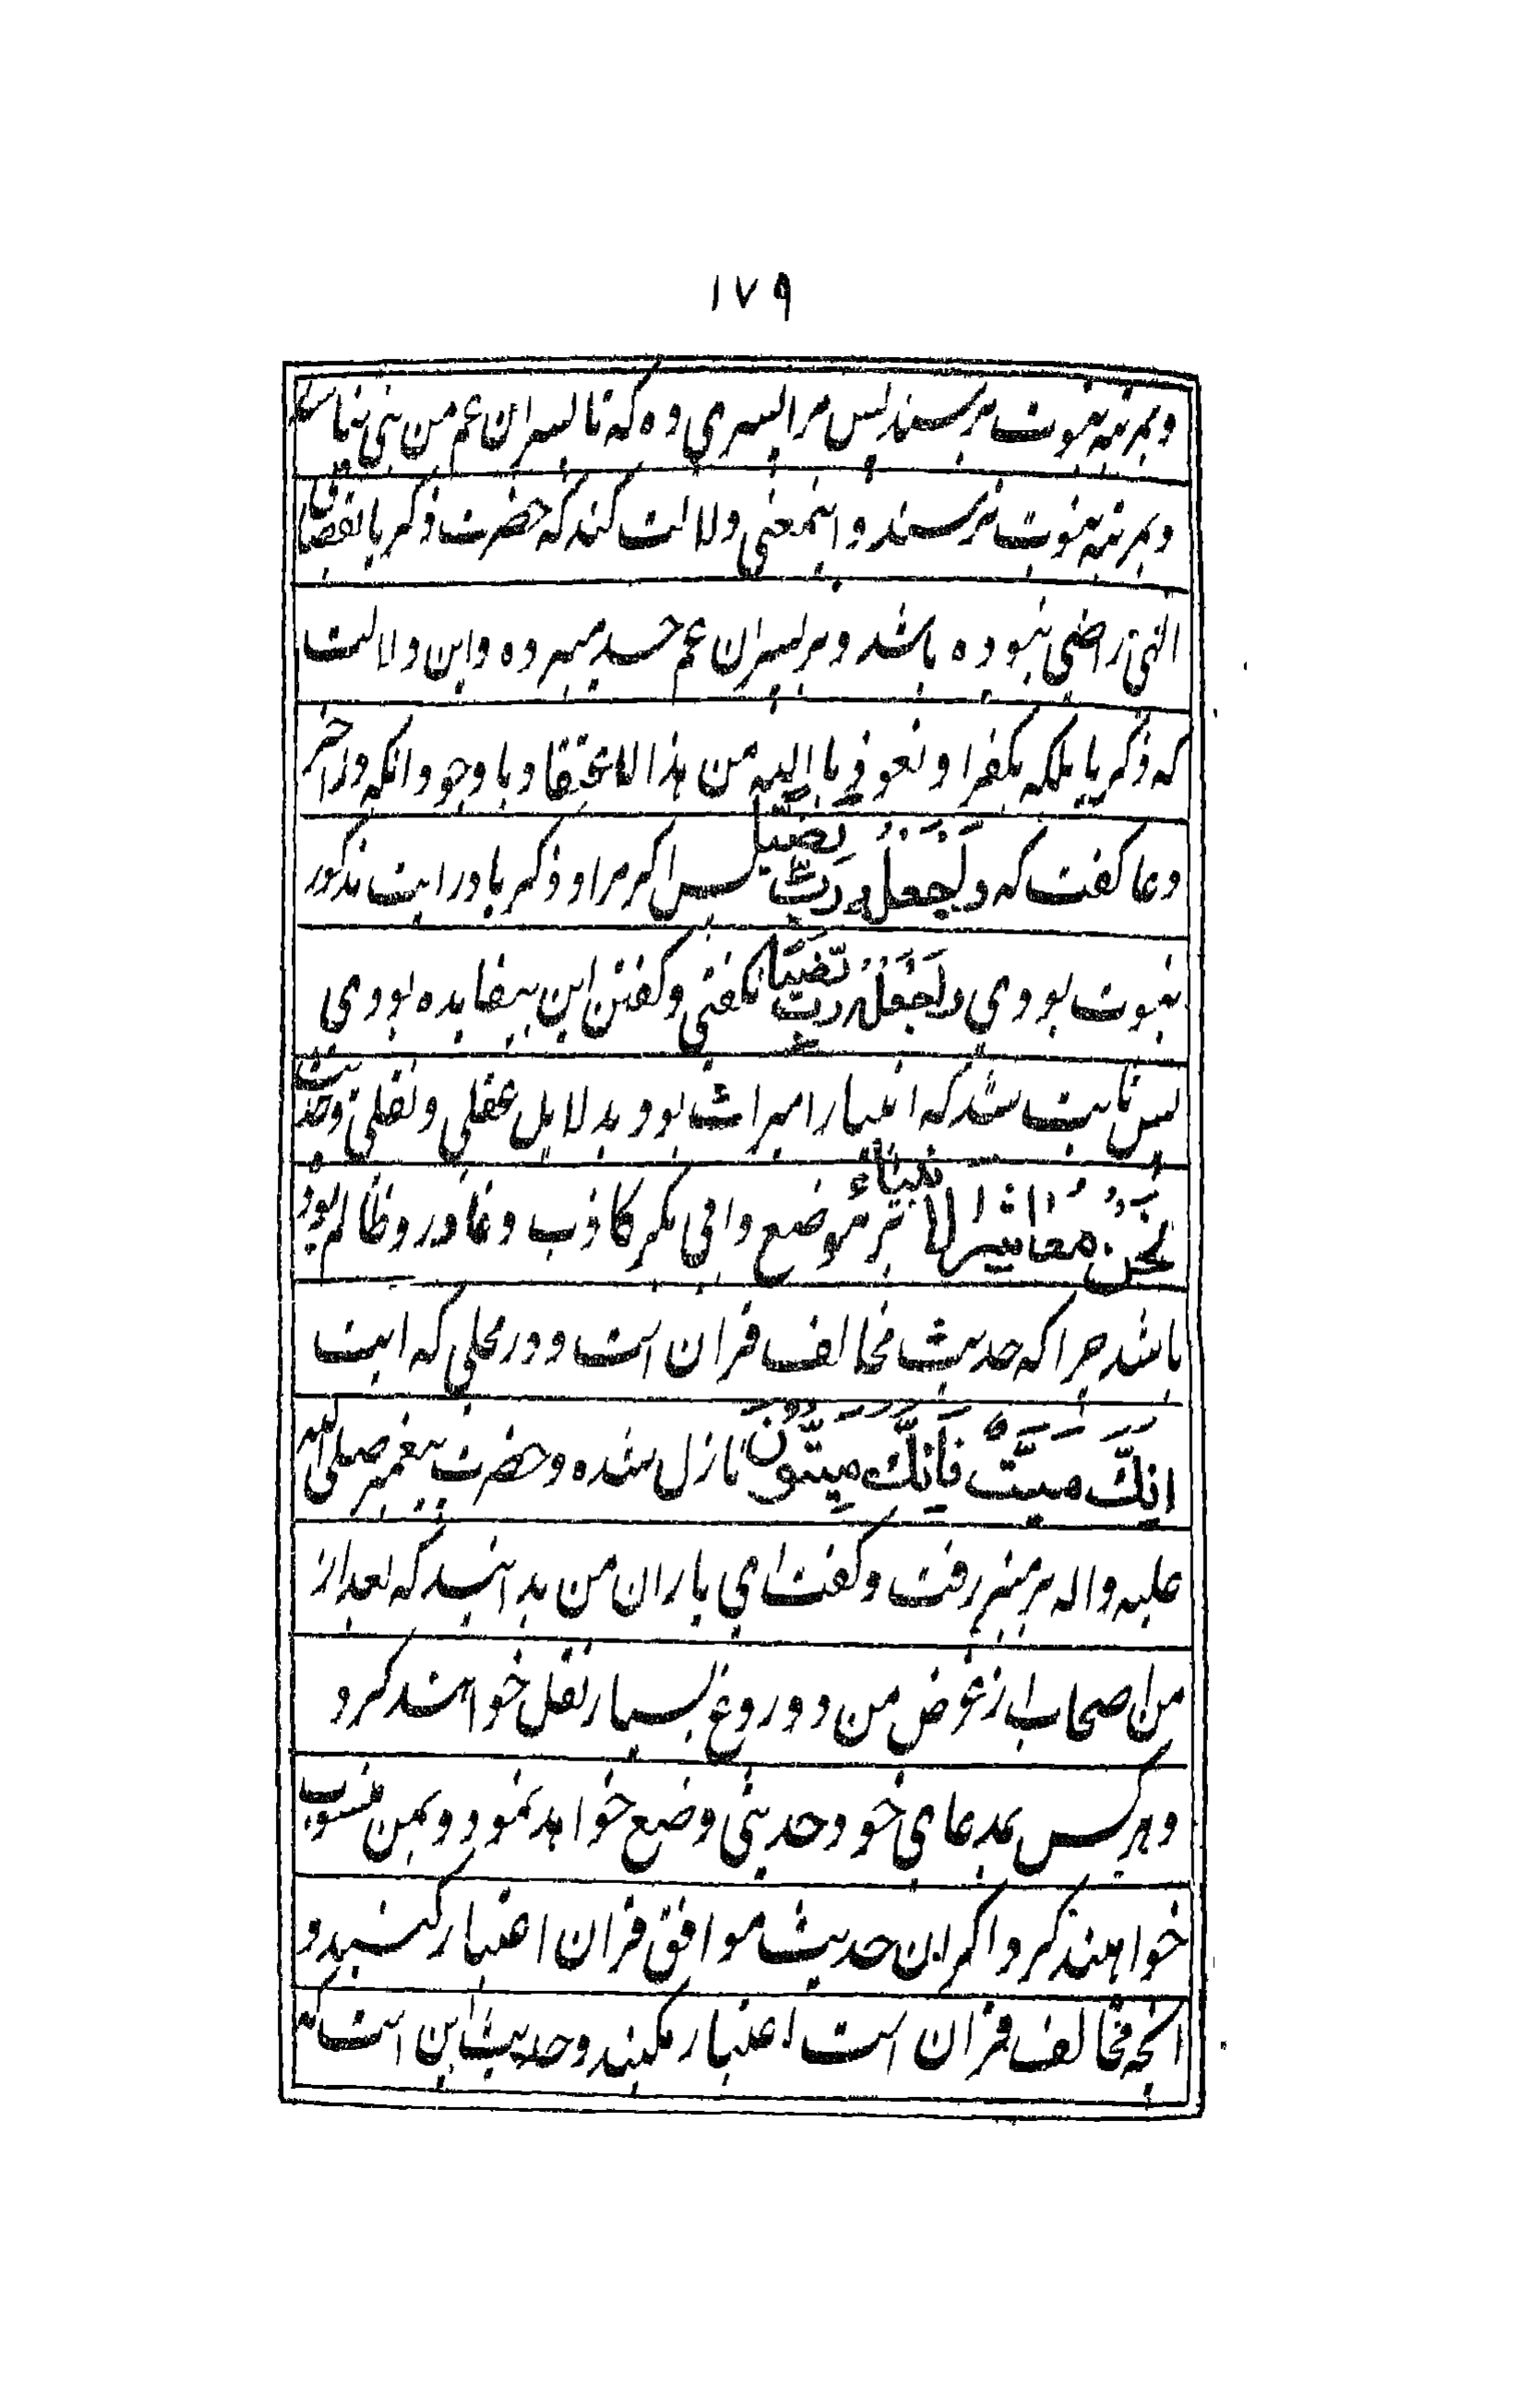 ۱۷۹
و بمرتبه نبوت برسند پس مرا پسری ده که تا پسران عم من نبی نباشند
و بمرتبه نبوت نرسند و اینمعنی دلالت کند که حضرت ذکریا بقضای
الهی راضی نبوده باشد و بر پسران عم حسد میبرده و این دلالت
که ذکریا بلکه بکفر او نعوذ بالله من هذا الاعتقاد با وجود انکه در اخر
دعا گفت که وَاجْعَلْهُ رَبِّ رَضِیّاً پس اگر مراد ذکریا در ایت مذکور
نبوت بودی وَاجْعَلْهُ رَبِّ رَضِیّاً نگفتی و گفتن این بیفایده بودی
پس ثابت شد که انبیا را میراث بود بدلایل عقلی و نقلی و حدیث
نَحْنُ مَعَاشِرَ الْاَنْبِیَاءِ بر موضع وافی بکر کاذب و غادر و ظالم بوده
باشد چرا که حدیث مخالف قران است و در محلی که ایت
اِنَّكَ مَیِّتٌ فَاِنَّكَ مَیِّتُونَ نازل شده و حضرت پیغمبر صلی الله
علیه و اله بر منبر رفت و گفت ای یاران من بدانید که بعد از
من اصحاب از غرض من و دروغ بسیار نقل خواهند کرد
و هر کس بمدعای خود حدیثی وضع خواهد نمود و بمن منسوب
خواهند کرد اگر این حدیث موافق قران اعتبار کنید و
انچه مخالف قران است اعتبار مکنید و حدیث این است که